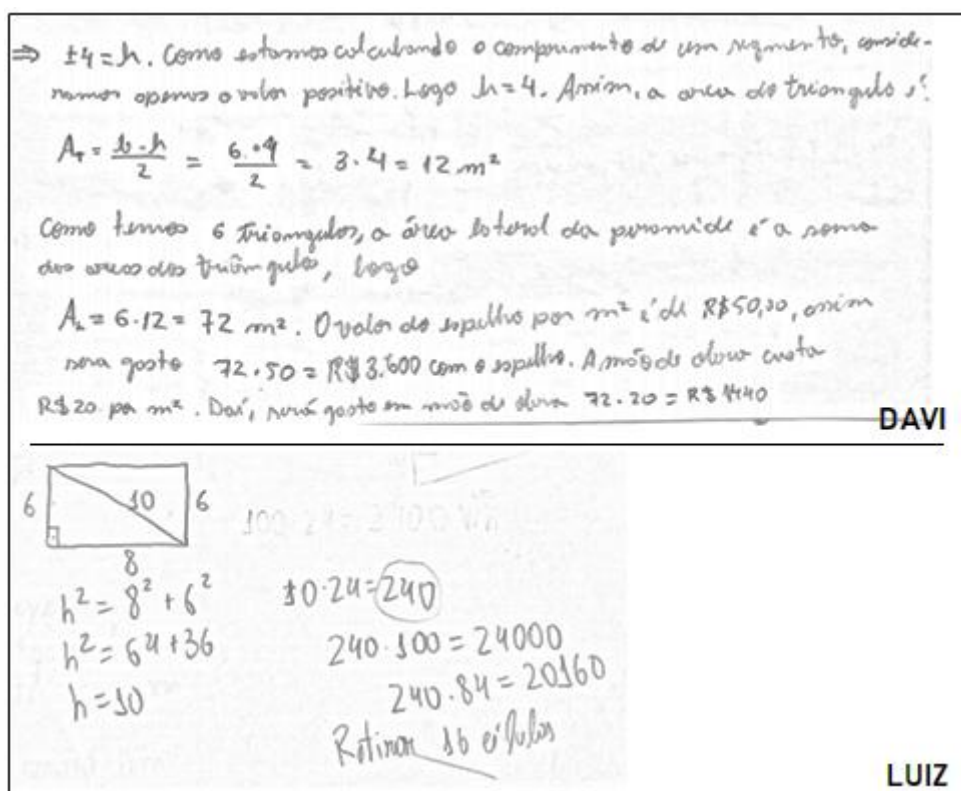 ⇒ ±4 = h. Como estamos calculando o comprimento de um segmento, conside-
ramos apenas o valor positivo. Logo h = 4. Assim, a area do triangulo é:
A_T = b·h/2 = 6·4/2 = 3·4 = 12 m²
Como temos 6 triangulos, a área lateral da piramide é a soma
das areas dos triângulos, logo
A_L = 6·12 = 72 m². O valor do espelho por m² é de R$50,00, assim
sera gasto 72·50 = R$3.600 com o espelho. A mão de obra custa
R$20 por m². Daí, será gasto em mão de obra 72·20 = R$1440
DAVI
6 10 6
8
h² = 8² + 6²
h² = 64 + 36
h = 10
10·24 = 240
240·100 = 24000
240·84 = 20160
Retirar 16 células
LUIZ